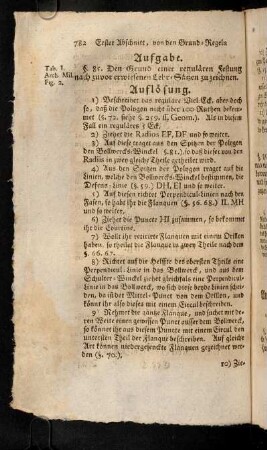 782 Erster Abschnitt, von den Grund-Regeln
Aufgabe.
Tab. I.
Arch. Mil.
Fig. 2.
§. 81. Den Grund einer regulären Festung
nach zuvor erwiesenen Lehr-Sätzen zu zeichnen.
Auflösung.
1) Beschreibet das reguläre Viel-Eck, aber doch
so, daß die Polygon nicht über 100 Ruthen bekommet
(§. 72. siehe §. 259. ff. Geom.). Als in diesem
Fall ein reguläres 5 Eck.
2) Ziehet die Radios EF, DF und so weiter.
3) Auf diese traget aus den Spitzen der Polygon
den Bollwercks-Winckel (§ 81.) so daß dieser von den
Radiis in zwey gleiche Theile getheilet wird.
4) Aus den Spitzen der Polygon traget auf die
Linien, welche den Bollwercks-Winckel bestimmen, die
Defens-Linie (§. 59.) DH, EI und so weiter.
5) Auf diesen richtet Perpendicul-Linien nach den
Fasen, so habt ihr die Flanquen (§. 56. 68.) II. MH
und so weiter.
6) Ziehet die Puncte HI zusammen, so bekommet
ihr die Courtine.
7) Wollt ihr retirirte Flanquen mit einem Orillon
haben, so theilet die Flanquen in zwey Theile nach dem
§. 66. 67.
8) Richtet auf die Helffte des obersten Theils ein
Perpendicul-Linie in das Bollwerck, und aus dem
Schulter-Winckel ziehet gleichfals eine Perpendicul-
Linie in das Bollwerck, wo sich diese beyde Linien schneiden,
da ist der Mittel-Punct von dem Orillon, und
könnt ihr also dieses mit einem Circul beschreiben.
9) Nehmet die gantze Flanque, und suchet mit deren
Weite einen gewissen Punct ausser dem Bollwerck,
so könnet ihr aus diesem Puncte mit einem Circul den
untersten Theil der Flanque beschreiben. Auf gleiche
Art können niedergesenckte Flanquen gezeichnet werden
(§. 70.);
10) Zie-